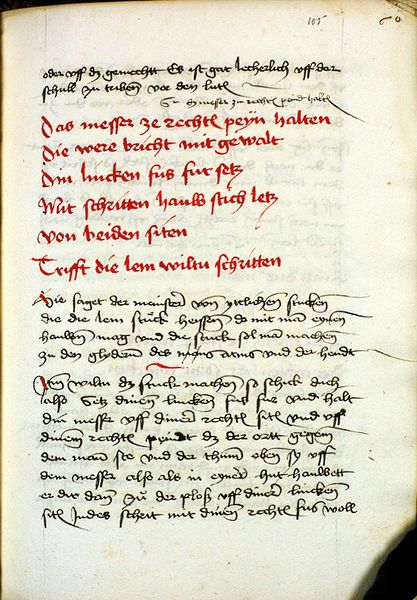 105 60
oder vff dz gemechtt Es ist gar lecherlich vff der
schull zu triben vor den lutē
Das messer ze rechtē peyn halten
Die were bricht mit gewalt
Din lincken fus fur setz
Mit schritten hauw stich letz
Von beiden siten
Trifft die lem wiltu schritten
Hie saget der maister von ytlichen stucken
die die lem stuck heyssen do mit mā eynen
hauwen mag vnd die stuck sol mā machen
zu den glydern des mans arms vnd der hendt
Item wiltu dz stuck machen so schick dich
also Setz dinen lincken fus fur vnd halt
din messer vff diner rechtē sitē vnd vff
dinem rechtē peyn dz der ortt gegen
dem man ste vnd der thum oben sy vff
dem messer also als in eyner hut hauwett
er dir dan zu der ploß vff diner lincken
sitē Indes schrit mit dinen rechtē fus woll